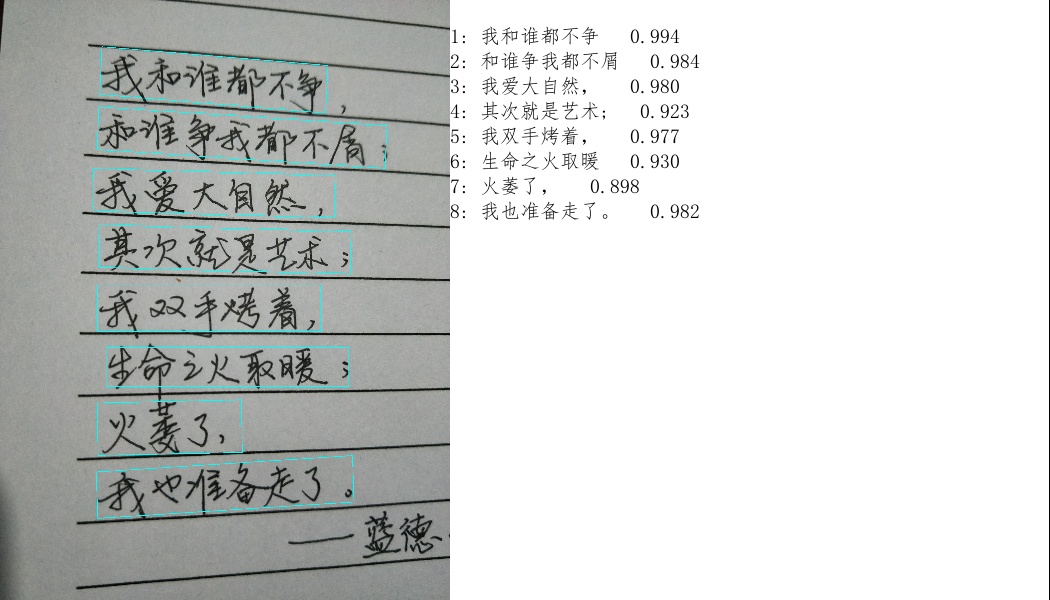 我和谁都不争，
和谁争我都不屑；
我爱大自然，
其次就是艺术；
我双手烤着，
生命之火取暖；
火萎了，
我也准备走了。
——蓝德
1: 我和谁都不争 0.994
2: 和谁争我都不屑 0.984
3: 我爱大自然， 0.980
4: 其次就是艺术； 0.923
5: 我双手烤着， 0.977
6: 生命之火取暖 0.930
7: 火萎了， 0.898
8: 我也准备走了。 0.982